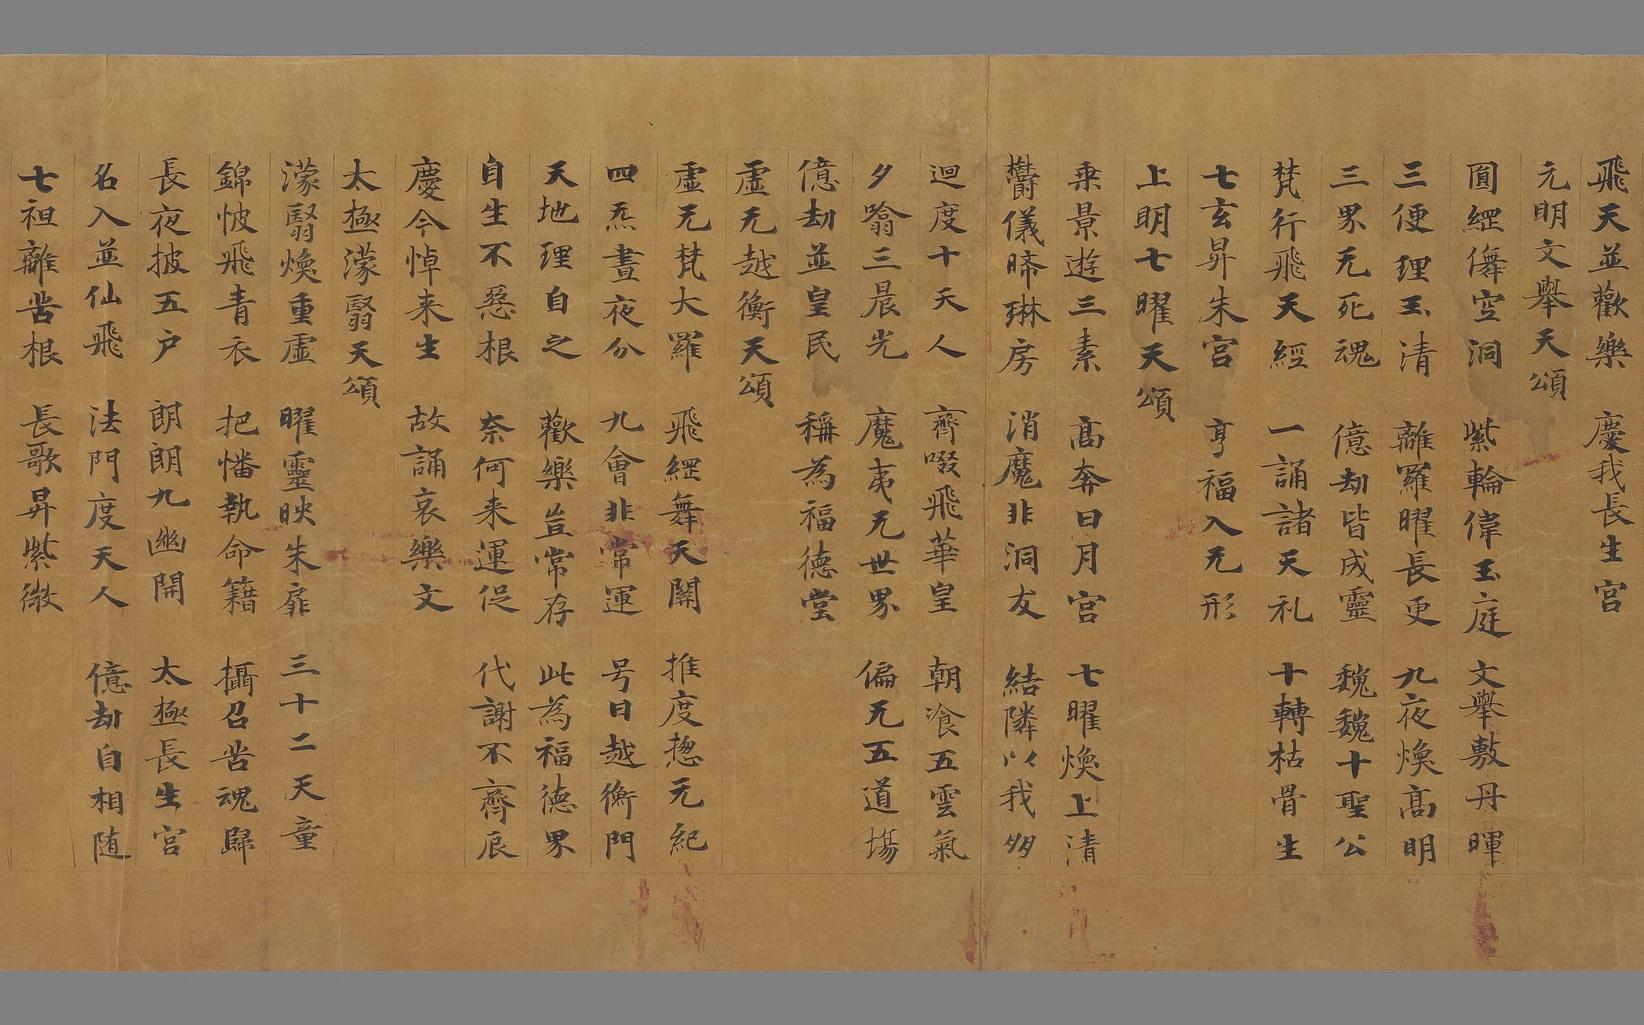 飛天並歡樂　慶我長生宮
元明文舉天頌
圓綑儛空洞　紫輪偉玉庭　文舉敷丹暉
三便理玉清　離羅曜長更　九夜煥高明
三界无死魂　億劫皆成靈　巍巍十聖公
梵行飛天經　一誦諸天礼　十轉枯骨生
七玄昇朱宮　享福入无形
上明七曜天頌
乗景遊三素　高奔日月宮　七曜煥上清
欝儀暐琳房　消魔非洞友　結隣以我多
迴度十天人　齊啜飛華皇　朝飡五雲氣
夕噏三晨光　魔夷无世界　偏无五道塲
億劫並皇民　稱為福德堂
虛无越衡天頌
虛无梵大羅　飛綑舞天關　推度揔元紀
四炁晝夜分　九會非常運　号日越衡門
天地理自之　歡樂豈常存　此為福德界
自生不惡根　奈何来運促　代謝不齊辰
慶今悼来生　故誦哀樂文
太極濛翳天頌
濛翳煥重虛　曜靈映朱扉　三十二天童
錦帔飛青衣　把幡執命籍　攝召苦魂歸
長夜披五户　朗朗九幽開　太極長生宮
名入並仙飛　法門度天人　億劫自相随
七祖離苦根　長歌昇紫微